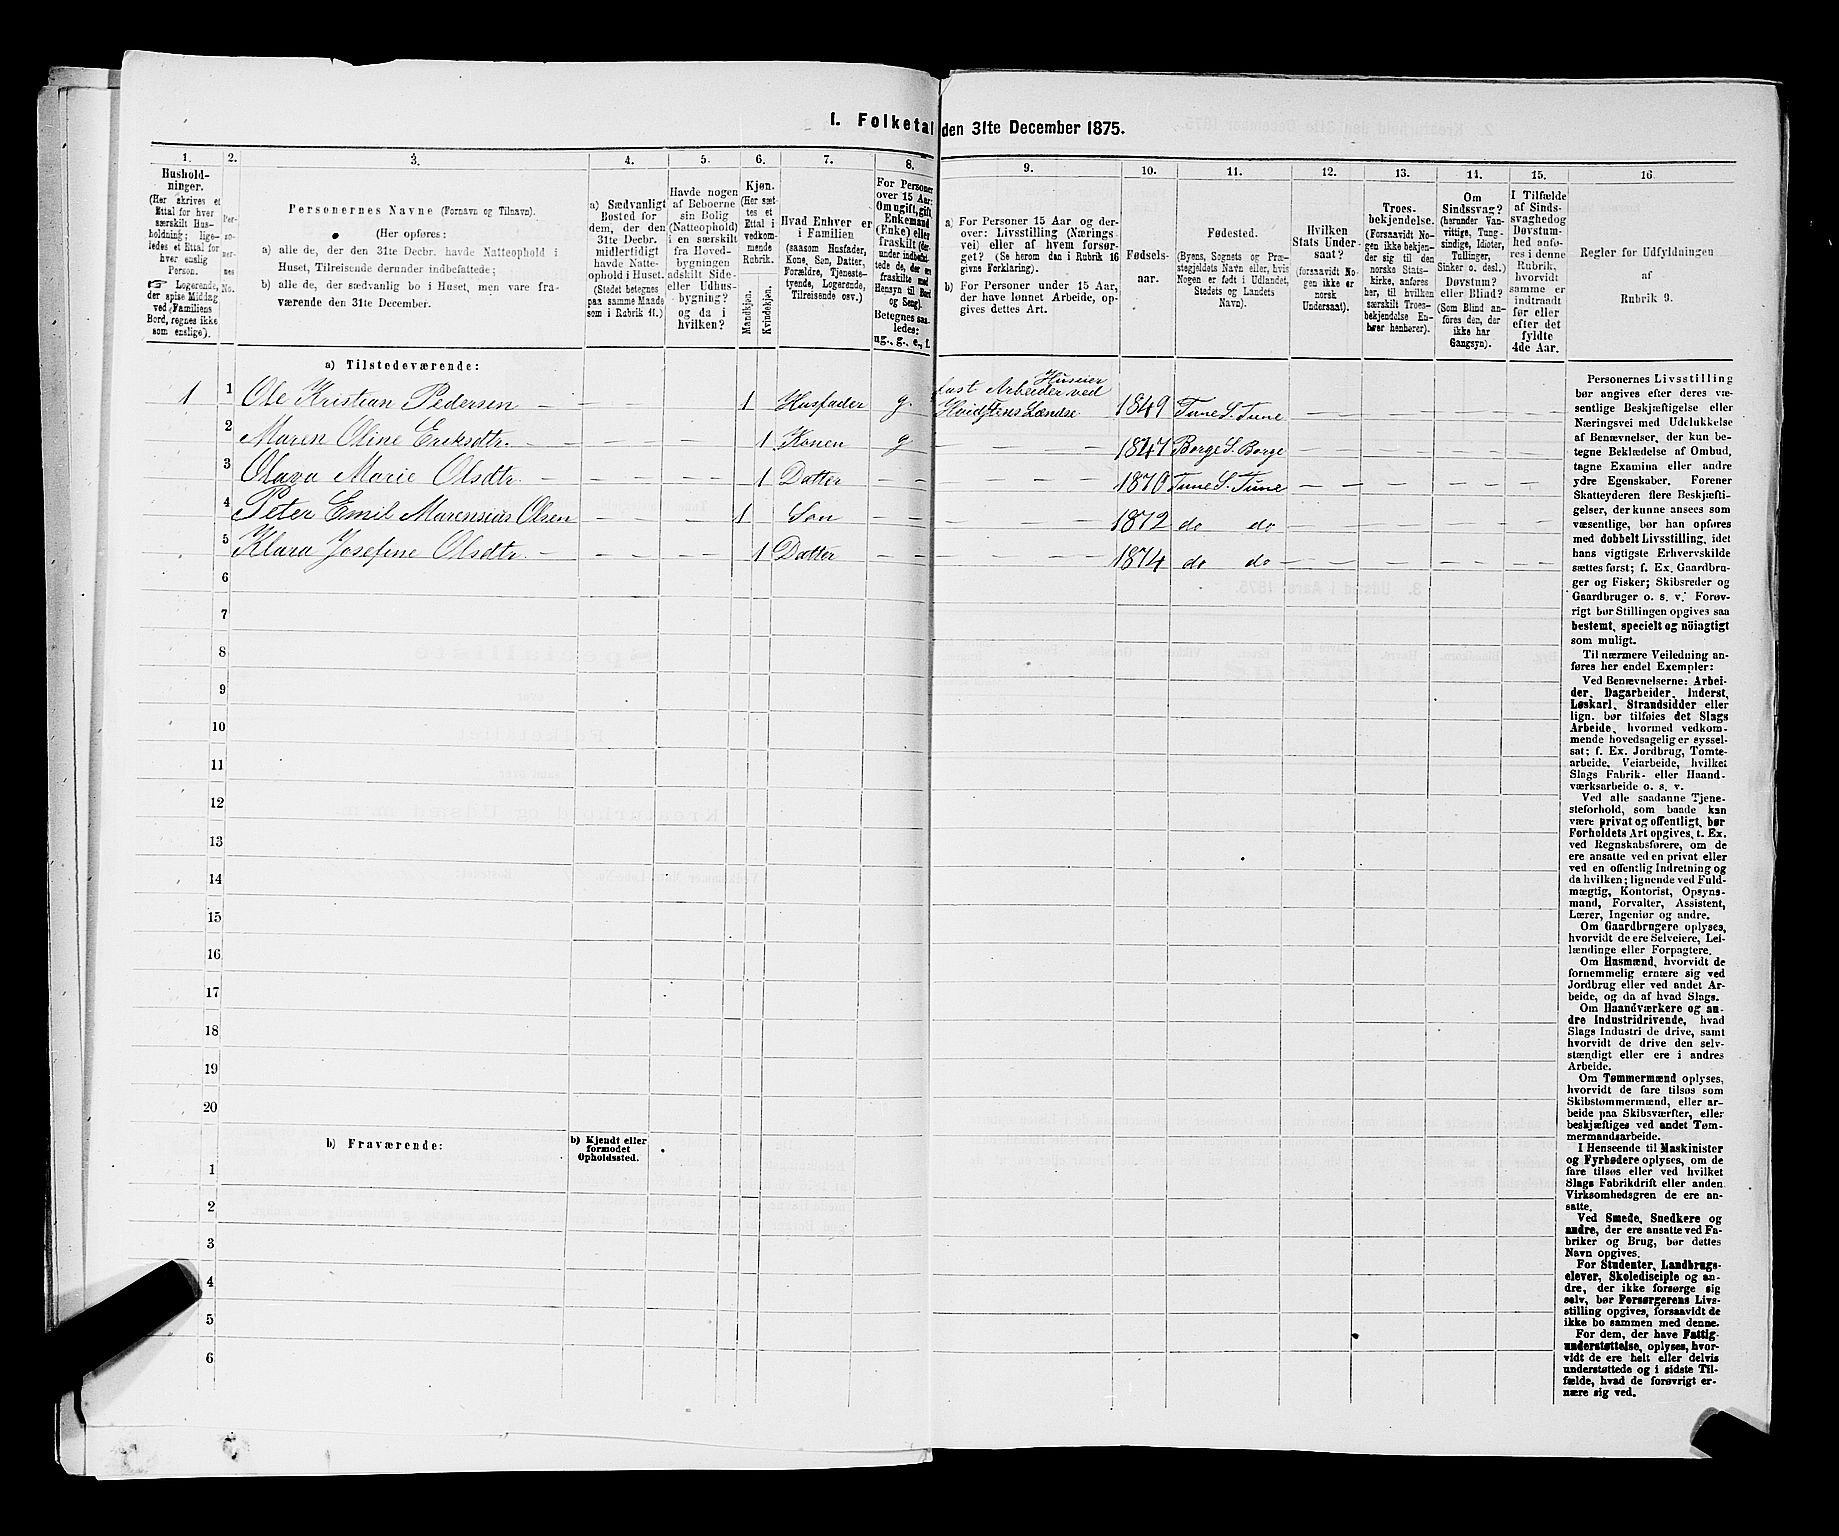 I. Folketal den 31te December 1875.
1. 2. 3. 4. 5. 6. 7. 8. 9. 10. 11. 12. 13. 14. 15. 16.
Hushold-
ninger.
(Her skrives et
Ettal for hver
særskilt Hus-
holdning; lige-
ledes et Ettal for
hver enslig
Person.
☞ Logerende,
der spise Middag
ved Familiens
Bord, regnes ikke
som enslige).
Per-
so-
ner-
nes
No.
Personernes Navne (Fornavn og Tilnavn).
(Her opføres:
a) alle de, der den 31te Decbr. havde Natteophold i
Huset, Tilreisende derunder indbefattede;
b) alle de, der sædvanlig bo i Huset, men vare fra-
værende den 31te December.
a) Sædvanligt
Bosted for
dem, der den
31te Decbr.
midlertidigt
havde Natte-
ophold i Huset.
(Stedet betegnes
paa samme Maade
som i Rubrik 11.)
Havde nogen
af Beboerne
sin Bolig
(Natteophold)
i en særskilt
fra Hoved-
bygningen
adskilt Side-
eller Udhus-
bygning?
og da i
hvilken?
Kjøn.
(Her sæt-
tes et
Ettal i
vedkom-
mende
Rubrik.
Mandkjøn.
Kvindekjøn.
Hvad Enhver er
i Familien
(saasom Husfader,
Kone, Søn, Datter,
Forældre, Tjeneste-
tyende, Logerende,
Tilreisende osv.)
For Personer
over 15 Aar:
Om ugift, gift,
Enkemand
(Enke) eller
fraskilt (der-
under indbefat-
tede de, der ere
fraskilte med
Hensyn til Bord
og Seng).
Betegnes saa-
ledes:
ug., g., e., f.
a) For Personer 15 Aar og der-
over: Livsstilling (Nærings-
vei) eller af hvem forsør-
get? (Se herom den i Rubrik 16
givne Forklaring).
b) For Personer under 15 Aar,
der have lønnet Arbeide, op-
gives dettes Art.
Fødsels-
aar.
Fødested.
(Byens, Sognets og Præ-
stegjeldets Navn eller, hvis
Nogen er født i Udlandet,
Stedets og Landets
Navn).
Hvilken
Stats Under-
saat?
(forsaavidt No-
gen ikke er
norsk
Undersaat).
Troes-
bekjendelse.
(Forsaavidt No-
gen ikke bekjen-
der sig til den
norske Stats-
kirke, anføres
her, til hvilken
særskilt Troes-
bekjendelse En-
hver henhører).
Om
Sindssvag?
(herunder Van-
vittige, Tung-
sindige, Idioter,
Tullinger,
Sinker o. desl.)
Døvstum?
eller Blind?
(Som Blind an-
føres den, der
ikke har
Gangsyn).
I Tilfælde
af Sinds-
svaghed og
Døvstum-
hed anfø-
res i denne
Rubrik,
hvorvidt
samme er
indtraadt
før eller
efter det
fyldte
4de Aar.
Regler for Udfyldningen
af
Rubrik 9.
a) Tilstedeværende:
1 1 Ole Kristian Pedersen — — — — — 1 Husfader g. Huseier fast Arbeider ved 1849 Tune S. Tune — — — — —
2 Maren Oline Eriksdtr. — — — — 1 Konen g — — 1847 Borge S. Borge — — — — —
3 Olava Marie Olsdtr. — — — — 1 Datter — — — — 1870 Tune S. Tune — — — — —
4 Peter Emil Marensius Olsen — — — — 1 Søn — — — — 1872 do do — — — — —
5 Klara Josefine Olsdtr. — — — — — 1 Datter — — — 1874 do do — — — — —
6
7
8
9
10
11
12
13
14
15
16
17
18
19
20
b) Fraværende:
b) Kjendt eller
formodet
Opholdssted.
1
2
3
4
5
6
Personernes Livsstilling
bør angives efter deres væ-
sentlige Beskjæftigelse eller
Næringsvei med Udelukkelse
af Benævnelser, der kun be-
tegne Beklædelse af Ombud,
tagne Examina eller andre
ydre Egenskaber. Forener
Skatteyderen flere Beskjæfti-
gelser, der kunne ansees som
væsentlige, bør han opføres
med dobbelt Livsstilling, idet
hans vigtigste Erhvervskilde
sættes først; f. Ex. Gaardbru-
ger og Fisker; Skibsreder og
Gaardbruger o. s. v. Forøv-
rigt bør Stillingen opgives saa
bestemt, specielt og nöiagtigt
som muligt.
Til nærmere Veiledning an-
føres her endel Exempler:
Ved Benævnelserne: Arbei-
der, Dagarbeider, Inderst,
Løskarl, Strandsidder eller
lign. bør tilføies det Slags
Arbeide, hvormed vedkom-
mende hovedsagelig er syssel-
sat; f. Ex. Jordbrug, Tomte-
arbeide, Veiarbeide, hvilket
Slags Fabrik- eller Haand-
værksarbeide o. s. v.
Ved alle saadanne Tjene-
steforhold, som baade kan
være privat og offentligt, bør
Forholdets Art opgives, t. Ex.
ved Regnskabsførere, om de
ere ansatte ved en privat eller
ved en offentlig Indretning og
da hvilken; lignende ved Fuld-
mægtig, Kontorist, Opsyns-
mand, Forvalter, Assistent,
Lærer, Ingeniør og andre.
Om Gaardbrugere oplyses,
hvorvidt de ere Selveiere, Lei-
lændinge eller Forpagtere.
Om Husmænd, hvorvidt de
fornemmelig ernære sig ved
Jordbrug eller ved andet Ar-
beide, og da af hvad Slags.
Om Haandværkere og an-
dre Industridrivende, hvad
Slags Industri de drive, samt
hvorvidt de drive den selv-
stændigt eller ere i andres
Arbeide.
Om Tømmermænd oplyses,
hvorvidt de fare tilsøs som
Skibstømmermænd, eller ar-
beide paa Skibsværfter, eller
beskjæftiges ved andet Tøm-
mermandsarbeide.
I Henseende til Maskinister
og Fyrbødere oplyses, om de
fare tilsøs eller ved hvilket
Slags Fabrikdrift eller anden
Virksomhedsgren de ere an-
satte.
Ved Smede, Snedkere og
andre, der ere ansatte ved Fa-
briker og Brug, bør dettes
Navn opgives.
For Studenter, Landbrugs-
elever, Skoledisciple og an-
dre, der ikke forsørge sig
selv, bør Forsørgerens Livs-
stilling opgives, forsaavidt de
ikke bo sammen med denne.
For dem, der have Fattig-
understøttelse, oplyses, hvor-
vidt de ere helt eller delvis
understøttede og i sidste Til-
fælde, hvad de forøvrigt er-
nære sig ved.